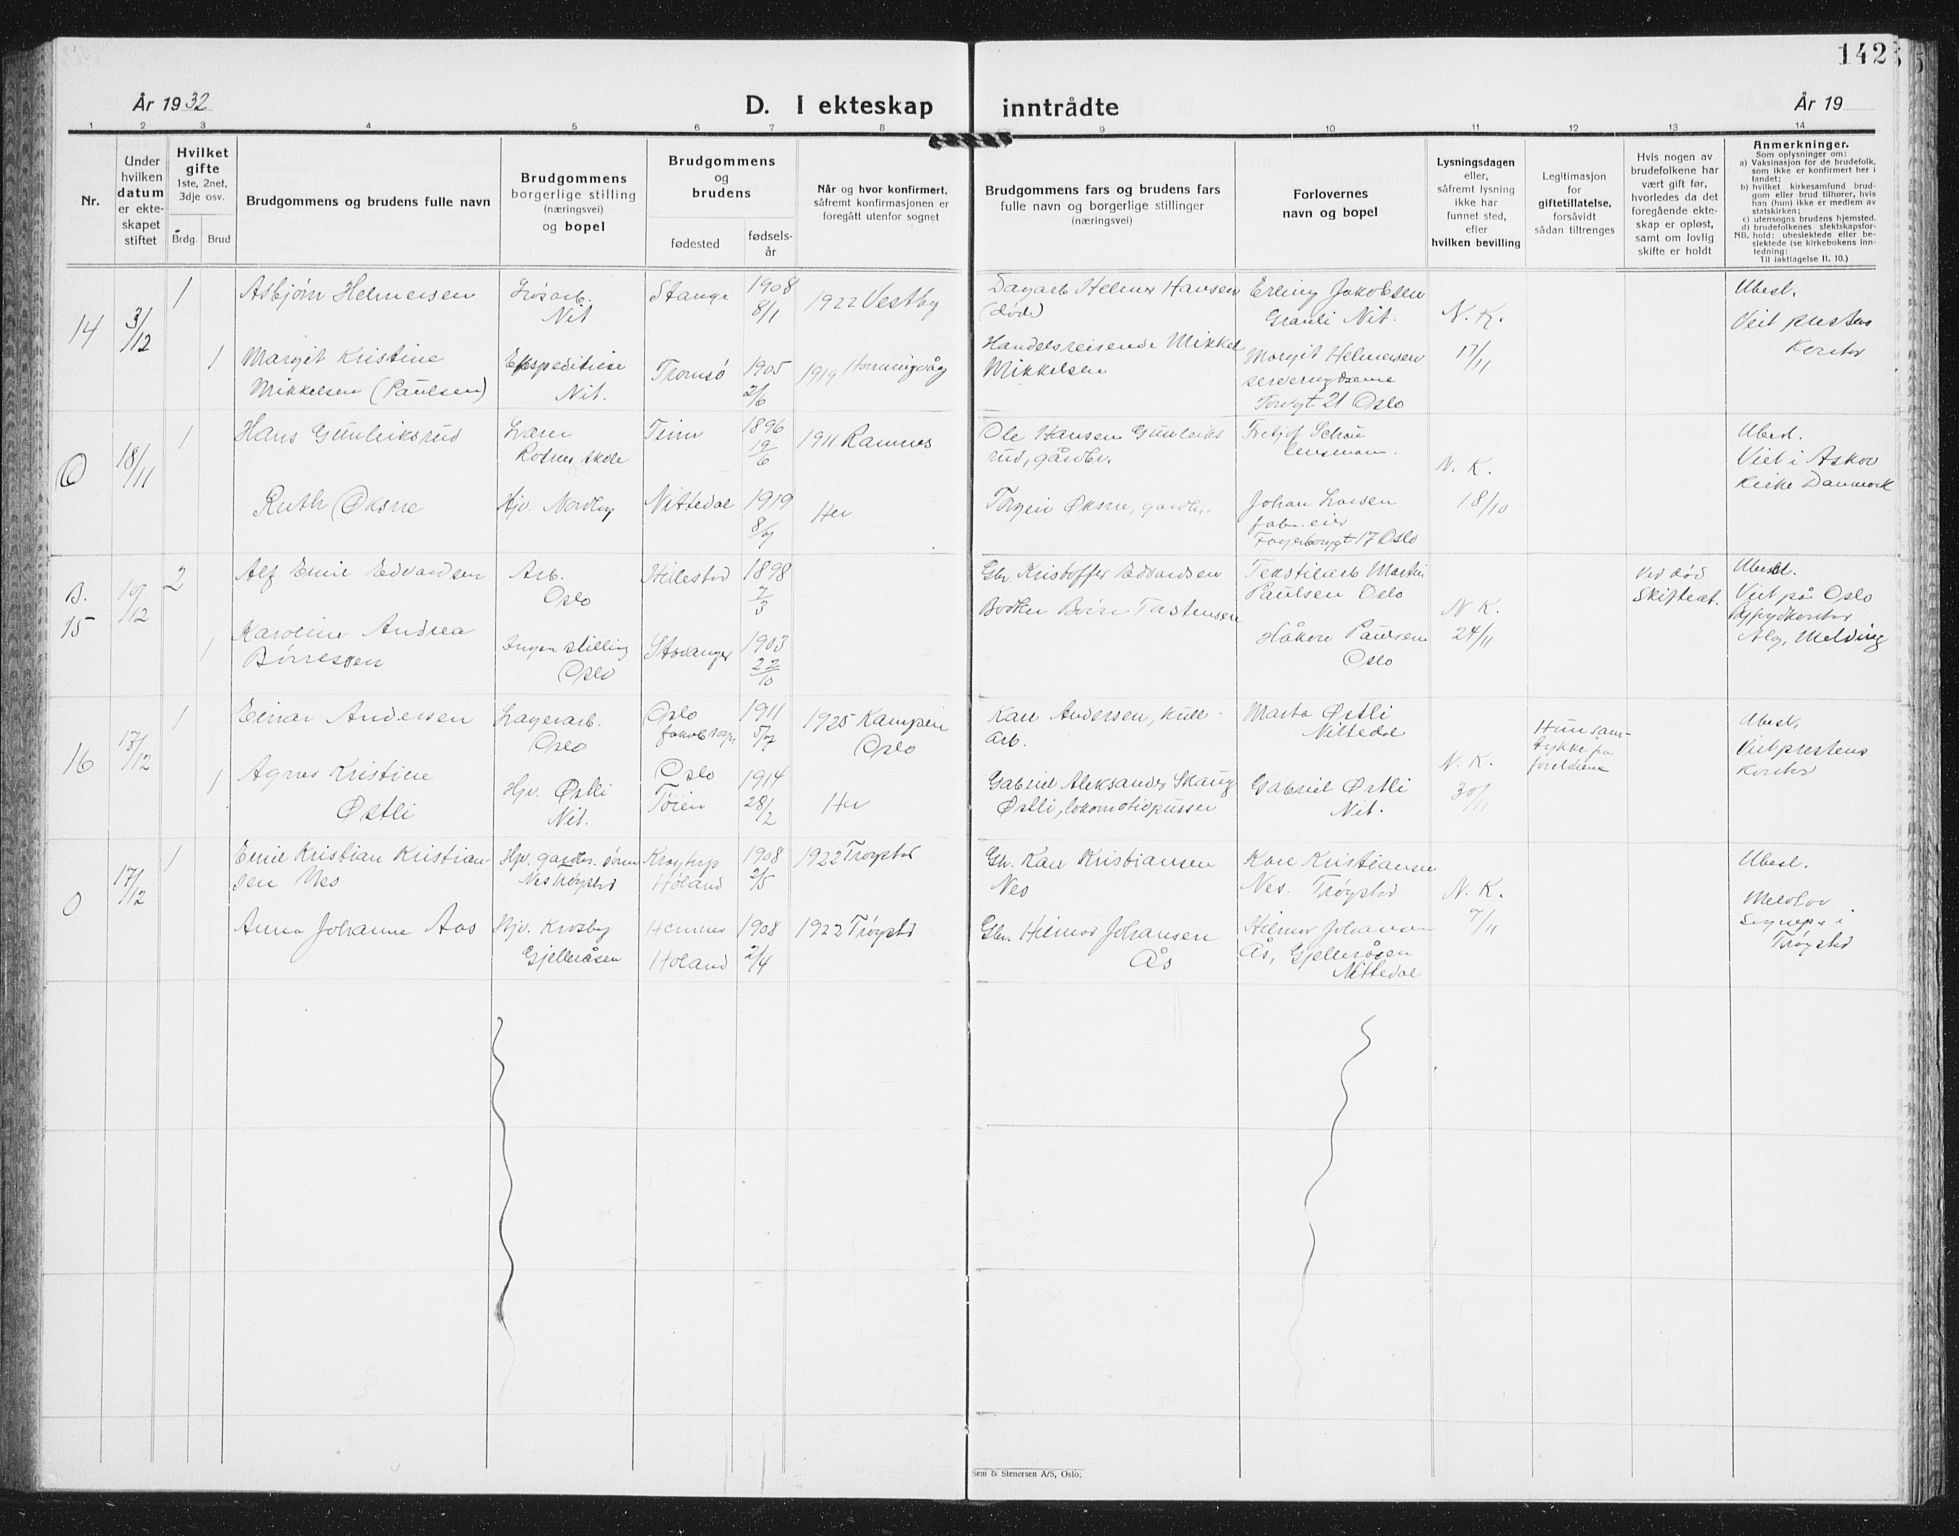 142
År 1932
D. I ekteskap inntrådte
År 19
1 2 3 4 5 6 7 8 9 10 11 12 13 14
Nr.
Under
hvilken
datum
er ekte-
skapet
stiftet
Hvilket
gifte
1ste, 2net,
3dje osv.
Brdg. Brud
Brudgommens og brudens fulle navn
Brudgommens
borgerlige stilling
(næringsvei)
og bopel
Brudgommens
og
brudens
fødested
fødsels-
år
Når og hvor konfirmert,
såfremt konfirmasjonen er
foregått utenfor sognet
Brudgommens fars og brudens fars
fulle navn og borgerlige stillinger
(næringsvei)
Forlovernes
navn og bopel
Lysningsdagen
eller,
såfremt lysning
ikke har
funnet sted,
efter
hvilken bevilling
Legitimasjon
for
giftetillatelse,
forsåvidt
sådan tiltrenges
Hvis nogen av
brudefolkene har
vært gift før,
hvorledes da det
foregående ekte-
skap er opløst,
samt om lovlig
skifte er holdt
Anmerkninger.
Som oplysninger om:
a) Vaksinasjon for de brudefolk,
som ikke er konfirmert her i
landet;
b) hvilket kirkesamfund brud-
gom eller brud tilhører, hvis
han (hun) ikke er medlem av
statskirken;
c) utensogns brudens hjemsted.
d) brudefolkenes slektskapsfor-
NB. hold: ubeslektede eller be-
slektede (se kirkebokens inn-
ledning:
Til iakttagelse II. 10.)
14
3/12
1
Asbjørn Helmersen
Nit
Stange
1908
8/1
1922 Vestby
Dagarb Helmer Hansen
(død)
Erling Jakobsen
Grauli Nit.
N. K.
17/11
Ubesl.
Viet prestens
kontor
1
Margit Kristine
Mikkelsen (Paulsen)
Ekspeditrise
Nit.
Tromsø
1905
2/6
1919 Honningvåg
Handelsreisende Mikkel
Mikkelsen
Margit Helmersen
Torvgt 21 Oslo
0
18/11
1
Hans Gunleiksrud
Lærer
Rotnes skole
Tinn
1896
19/6
1911 Ramnes
Ole Hansen Gunleiks
rud, gårdbr.
Fritjof Schou
lensmann.
N. K.
18/10
Ubesl.
Viet i Askov
kirke Danmark
Ruth Øksne
Hjv. Nordby
Nittedal
1919
Her
Torgeir Øksne, gardbr.
Johan Larsen
fabr. eier
Fagerborggt 17 Oslo
B.
15
10/12
2
Alf Emil Edvardsen
Arb.
Oslo
1898
7/3
Gbr. Kristoffer Edvardsen
Tekstilarb Martin
Paulsen Oslo
N K.
24/11
Ved død
Skifteat.
Ubesl.
Viet på Oslo
Byfogdkontor
Alg. Melding
1
Karoline Andrea
Børresen
Ingen stilling
Oslo
Stavanger
1903
22/10
Bødker Børre Tastensen
Håkon Paulsen
Oslo
16
17/12
1
Einar Andersen
Lagerarb.
Oslo
Oslo
Jakob sogn
1911
5/7
1925 Kampen
Oslo
Karl Andersen, kull-
arb.
Marta Østli
Nittedal
N. K.
30/11
Hun sam-
tykke fra
foreldrene
Ubesl.
Viet prestens
kontor
1
Agnes Kristine
Østli
Hjv. Østli
Nit.
Oslo
Tøien
1914
28/2
Her
Gabriel Aleksander Skaug
Østli, lokomotivpusser
Gabriel Østli
Nit.
0
17/12
1
Emil Kristian Kristian-
sen Nes
Hjv. gardbr. sønn
Nes Trøgstad
Høland
1908
2/5
1922 Trøgstad
Gbr. Karl Kristiansen
Nes
Kåre Kristiansen
Nes. Trøgstad
N. K.
7/11
Ubesl.
Meld. av
Sognepr i
Trøgstad
Anna Johanne Aas
Hjv. Krosby
Gjelleråsen
Hemnes
Høland
1908
2/4
1922 Trøgstad
Gbr. Hilmar Johansen
Ås
Hilmar Johansen
Ås, Gjelleråsen
Nittedal
Sem & Stenersen A/S, Oslo;